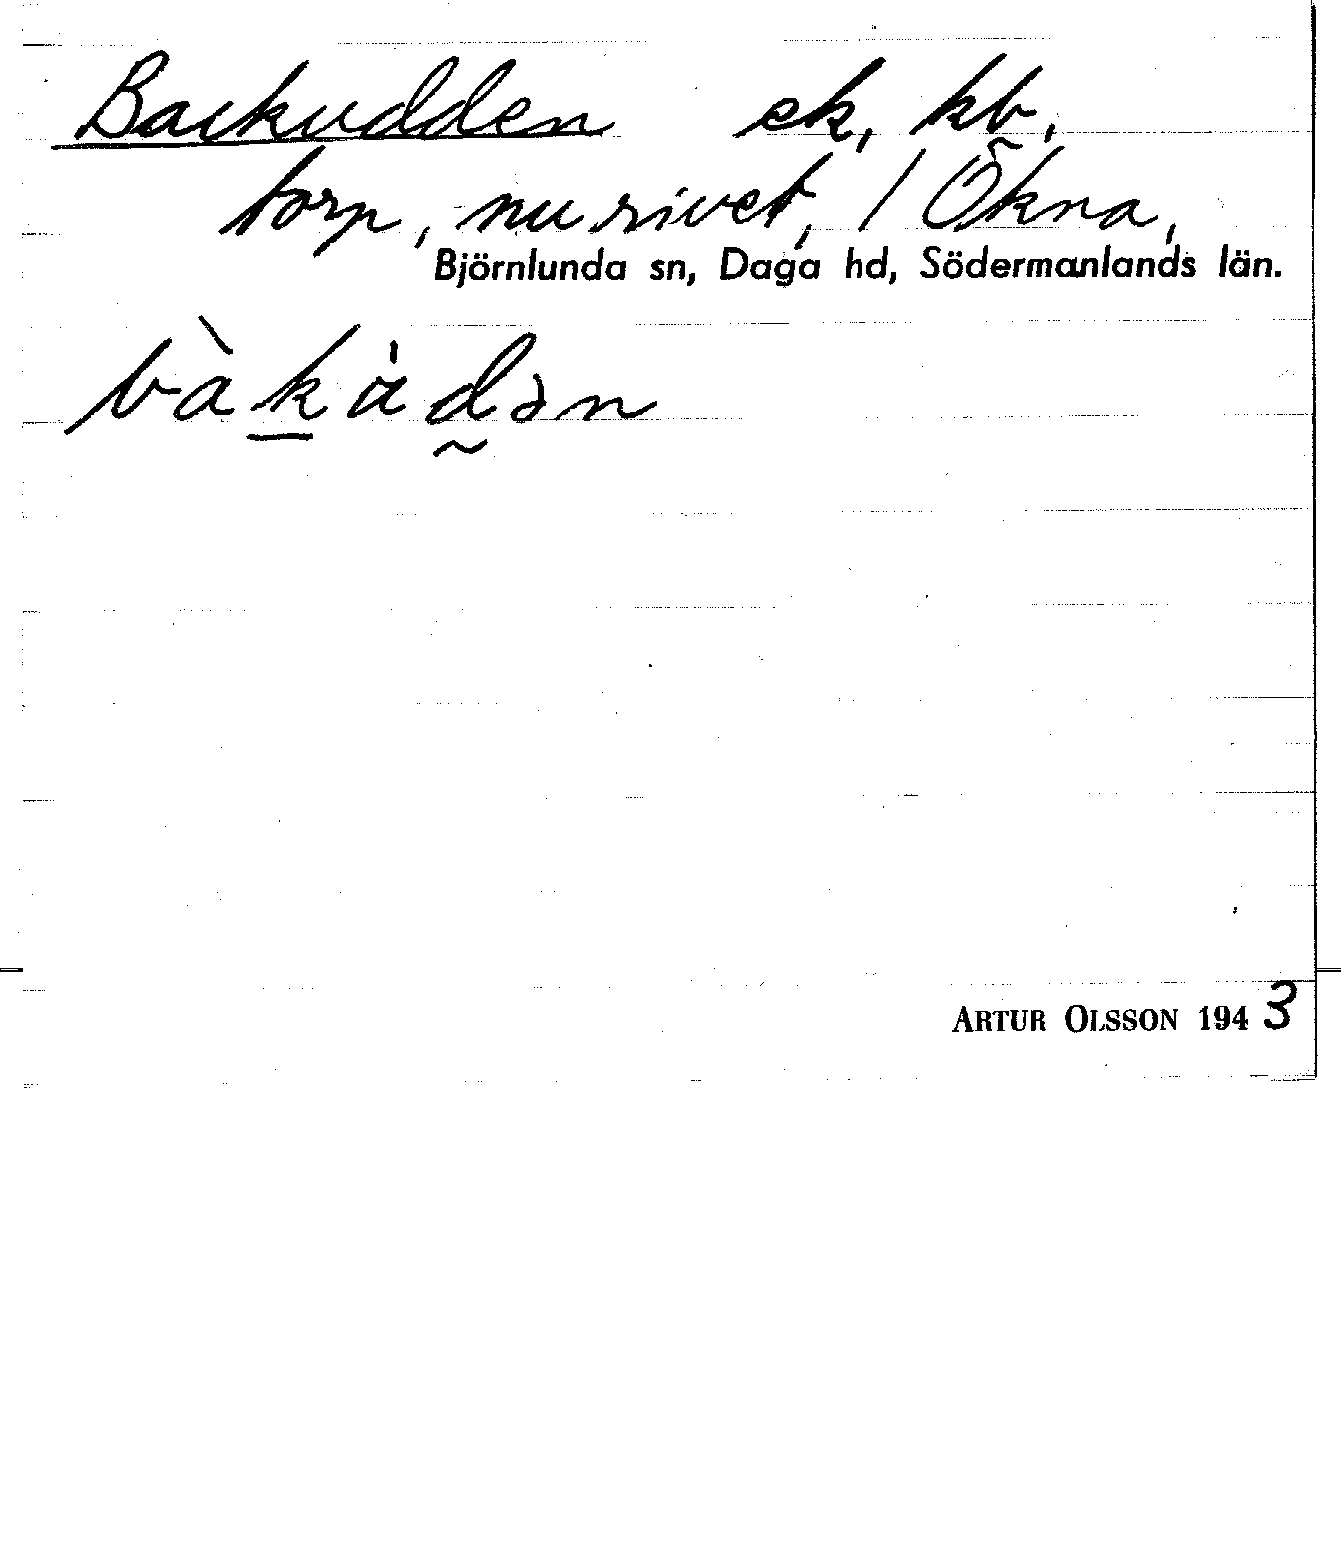 Backudden ek, kb,
torp, nu rivet, / Ökna,
Björnlunda sn, Daga hd, Södermanlands län.
bàkàdən
ARTUR OLSSON 1943